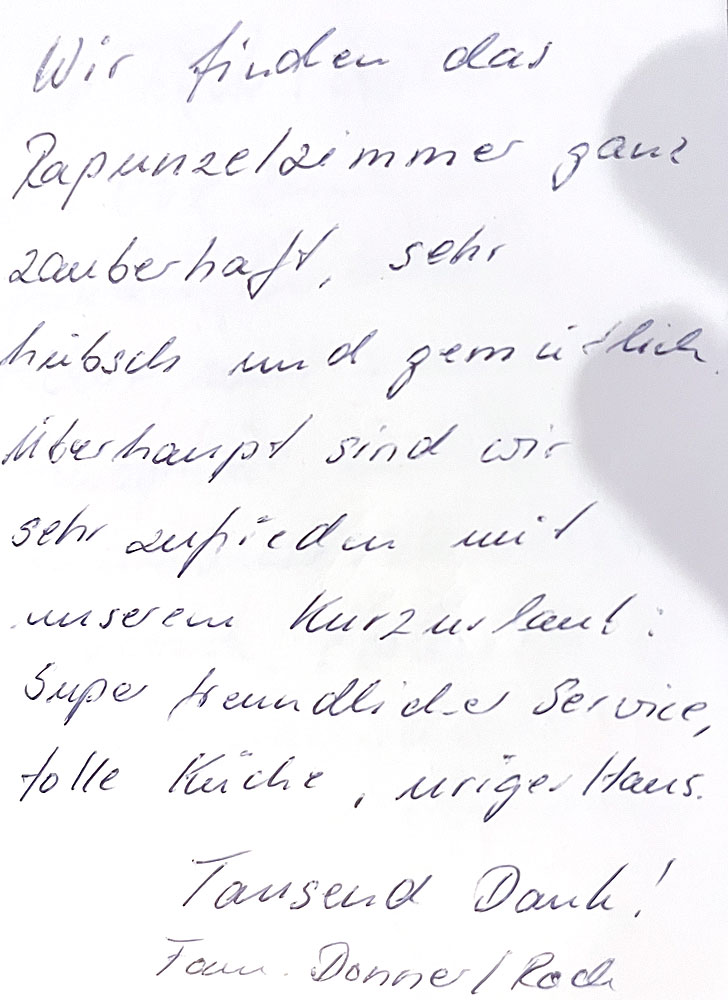 Wir finden das
Rapunzelzimmer ganz
zauberhaft, sehr
hübsch und gemütlich.
Überhaupt sind wir
sehr zufrieden mit
unserem Kurzurlaub:
Super freundlicher Service,
tolle Küche, uriges Haus.
Tausend Dank!
Fam. Donner/Roch